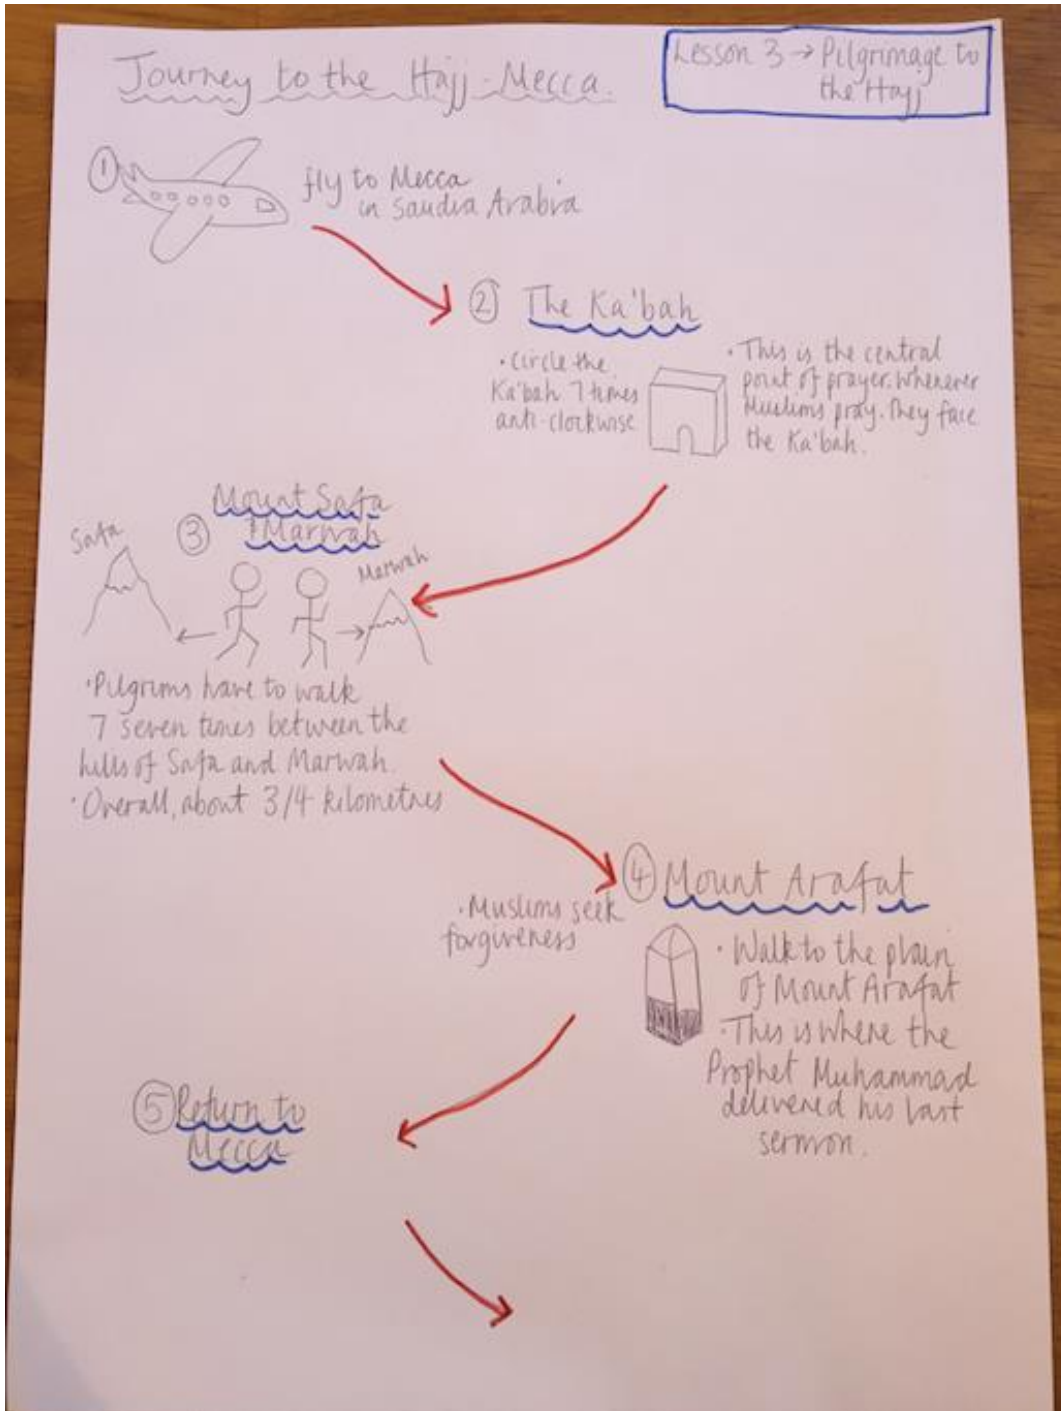 Journey to the Hajj - Mecca.
Lesson 3 → Pilgrimage to
the Hajj
1
fly to Mecca
in Saudia Arabia
2 The Ka'bah
• Circle the
Ka'bah 7 times
anti-clockwise
• This is the central
point of prayer. Whenever
Muslims pray. They face
the Ka'bah.
3 Mount Safa
& Marwah
Safa
Marwah
• Pilgrims have to walk
7 seven times between the
hills of Safa and Marwah.
• Overall, about 3/4 kilometres
4 Mount Arafat
• Muslims seek
forgiveness
• Walk to the plain
of Mount Arafat
• This is where the
Prophet Muhammad
delivered his last
sermon.
5 Return to
Mecca